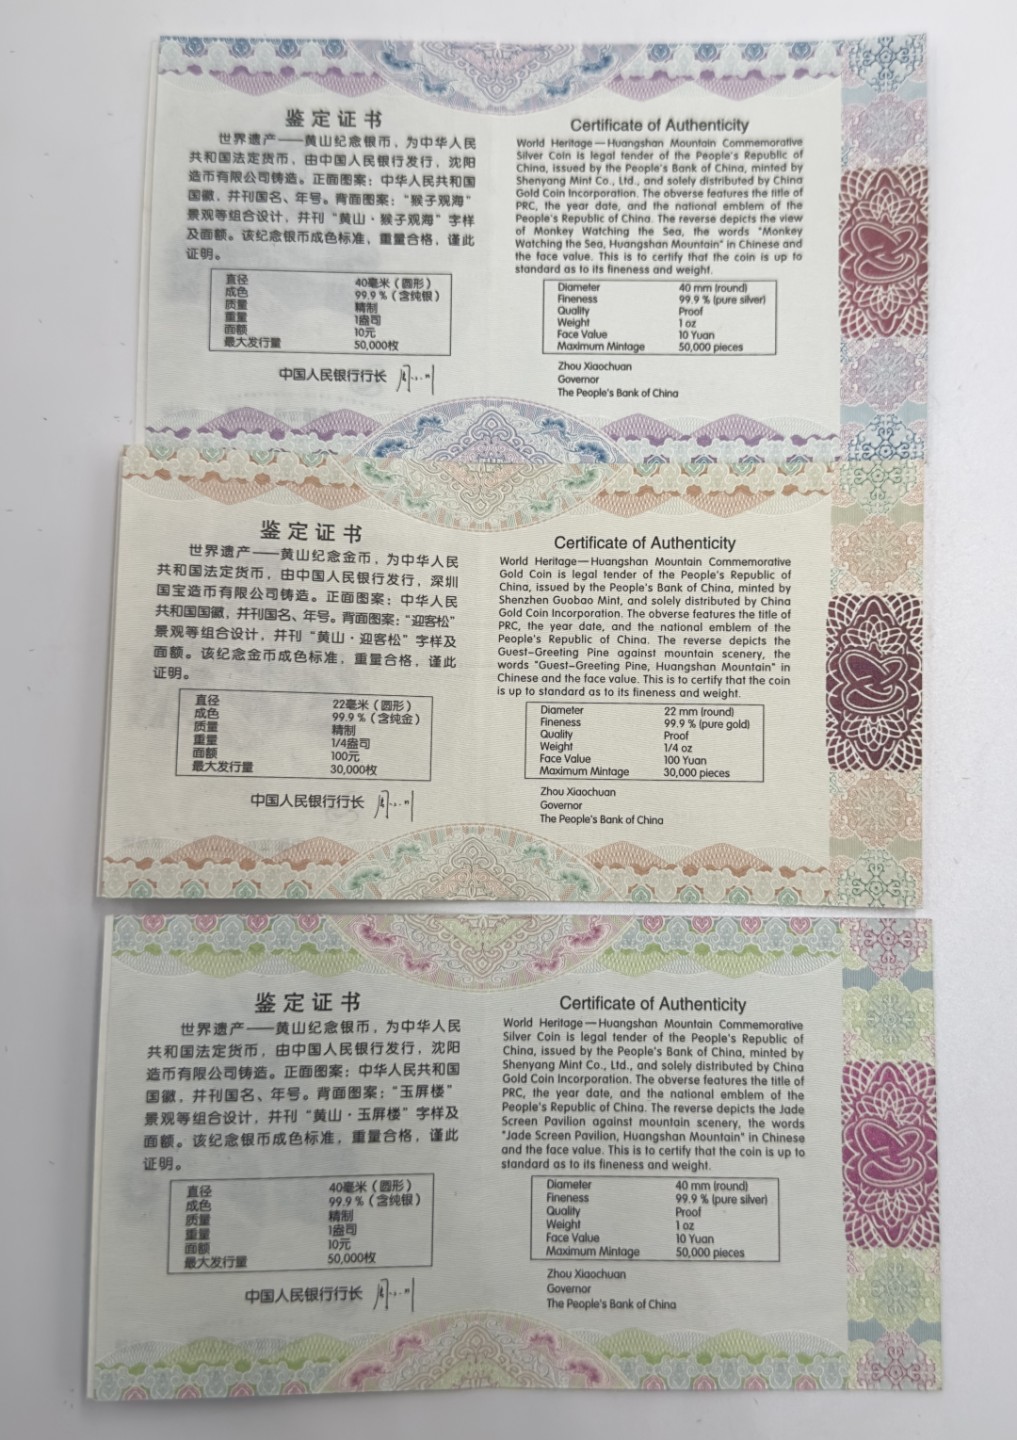 鉴定证书
世界遗产——黄山纪念银币，为中华人民
共和国法定货币，由中国人民银行发行，沈阳
造币有限公司铸造。正面图案：中华人民共和国
国徽，并刊国名、年号。背面图案：“猴子观海”
景观等组合设计，并刊“黄山·猴子观海”字样
及面额。该纪念银币成色标准，重量合格，谨此
证明。
直径 40毫米（圆形）
成色 99.9％（含纯银）
质量 精制
重量 1盎司
面额 10元
最大发行量 50,000枚
中国人民银行行长
Certificate of Authenticity
World Heritage—Huangshan Mountain Commemorative
Silver Coin is legal tender of the People's Republic of
China, issued by the People's Bank of China, minted by
Shenyang Mint Co., Ltd., and solely distributed by China
Gold Coin Incorporation. The obverse features the title of
PRC, the year date, and the national emblem of the
People's Republic of China. The reverse depicts the view
of Monkey Watching the Sea, the words "Monkey
Watching the Sea, Huangshan Mountain" in Chinese and
the face value. This is to certify that the coin is up to
standard as to its fineness and weight.
Diameter 40 mm (round)
Fineness 99.9 % (pure silver)
Quality Proof
Weight 1 oz
Face Value 10 Yuan
Maximum Mintage 50,000 pieces
Zhou Xiaochuan
Governor
The People's Bank of China
鉴定证书
世界遗产——黄山纪念金币，为中华人民
共和国法定货币，由中国人民银行发行，深圳
国宝造币有限公司铸造。正面图案：中华人民
共和国国徽，并刊国名、年号。背面图案：“迎客松”
景观等组合设计，并刊“黄山·迎客松”字样及
面额。该纪念金币成色标准，重量合格，谨此
证明。
直径 22毫米（圆形）
成色 99.9％（含纯金）
质量 精制
重量 1/4盎司
面额 100元
最大发行量 30,000枚
中国人民银行行长
Certificate of Authenticity
World Heritage—Huangshan Mountain Commemorative
Gold Coin is legal tender of the People's Republic of
China, issued by the People's Bank of China, minted by
Shenzhen Guobao Mint, and solely distributed by China
Gold Coin Incorporation. The obverse features the title of
PRC, the year date, and the national emblem of the
People's Republic of China. The reverse depicts the
Guest-Greeting Pine against mountain scenery, the
words "Guest-Greeting Pine, Huangshan Mountain" in
Chinese and the face value. This is to certify that the coin
is up to standard as to its fineness and weight.
Diameter 22 mm (round)
Fineness 99.9 % (pure gold)
Quality Proof
Weight 1/4 oz
Face Value 100 Yuan
Maximum Mintage 30,000 pieces
Zhou Xiaochuan
Governor
The People's Bank of China
鉴定证书
世界遗产——黄山纪念银币，为中华人民
共和国法定货币，由中国人民银行发行，沈阳
造币有限公司铸造。正面图案：中华人民共和国
国徽，并刊国名、年号。背面图案：“玉屏楼”
景观等组合设计，并刊“黄山·玉屏楼”字样及
面额。该纪念银币成色标准，重量合格，谨此
证明。
直径 40毫米（圆形）
成色 99.9％（含纯银）
质量 精制
重量 1盎司
面额 10元
最大发行量 50,000枚
中国人民银行行长
Certificate of Authenticity
World Heritage—Huangshan Mountain Commemorative
Silver Coin is legal tender of the People's Republic of
China, issued by the People's Bank of China, minted by
Shenyang Mint Co., Ltd., and solely distributed by China
Gold Coin Incorporation. The obverse features the title of
PRC, the year date, and the national emblem of the
People's Republic of China. The reverse depicts the Jade
Screen Pavilion against mountain scenery, the words
"Jade Screen Pavilion, Huangshan Mountain" in Chinese
and the face value. This is to certify that the coin is up to
standard as to its fineness and weight.
Diameter 40 mm (round)
Fineness 99.9 % (pure silver)
Quality Proof
Weight 1 oz
Face Value 10 Yuan
Maximum Mintage 50,000 pieces
Zhou Xiaochuan
Governor
The People's Bank of China